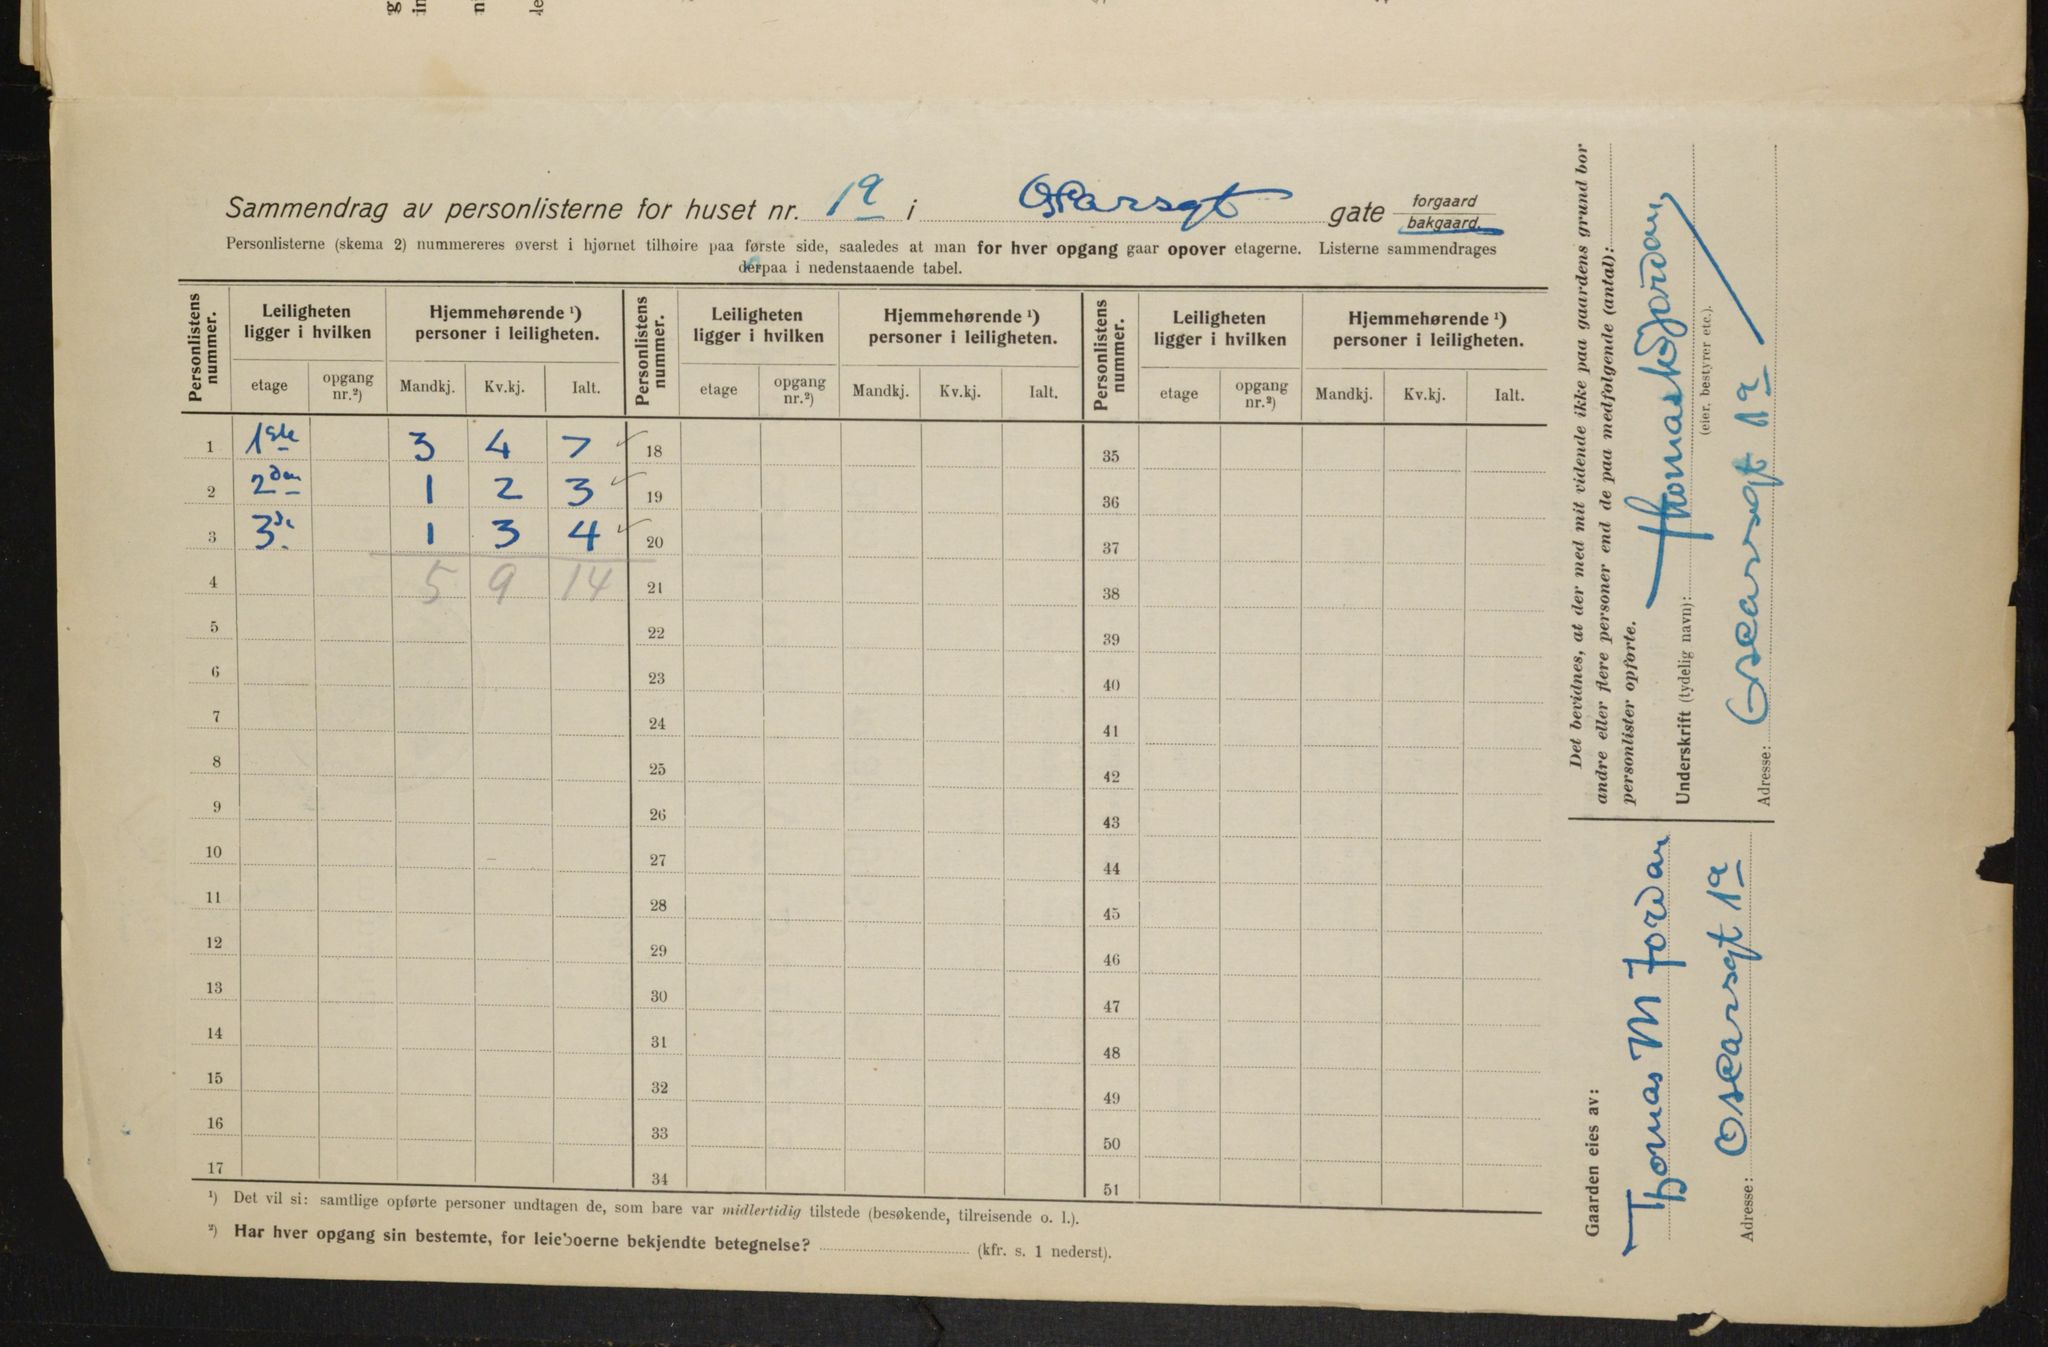 Sammendrag av personlisterne for huset nr. 1a i Oskarsgt gate forgaard bakgaard.
Personlisterne (skema 2) nummereres øverst i hjørnet tilhøire paa første side, saaledes at man for hver opgang gaar opover etagerne. Listerne sammendrages
derpaa i nedenstaaende tabel.
Personlistens nummer. Leiligheten ligger i hvilken Hjemmehørende ¹) personer i leiligheten. Personlistens nummer. Leiligheten ligger i hvilken Hjemmehørende ¹) personer i leiligheten. Personlistens nummer. Leiligheten ligger i hvilken Hjemmehørende ¹) personer i leiligheten.
etage opgang nr.²) Mandkj. Kv.kj. Ialt. etage opgang nr.²) Mandkj. Kv.kj. Ialt. etage opgang nr.²) Mandkj. Kv.kj. Ialt.
1 1ste 3 4 7 18 35
2 2den 1 2 3 19 36
3 3de 1 3 4 20 37
4 5 9 14 21 38
5 22 39
6 23 40
7 24 41
8 25 42
9 26 43
10 27 44
11 28 45
12 29 46
13 30 47
14 31 48
15 32 49
16 33 50
17 34 51
¹) Det vil si: samtlige opførte personer undtagen de, som bare var midlertidig tilstede (besøkende, tilreisende o. l.).
²) Har hver opgang sin bestemte, for leieboerne bekjendte betegnelse? (kfr. s. 1 nederst).
Det bevidnes, at der med mit vidende ikke paa gaardens grund bor
andre eller flere personer end de paa medfølgende (antal):
personlister opførte.
Underskrift (tydelig navn): Thomas M Jordan
(eier, bestyrer etc.).
Adresse: Oscarsgt 1a
Gaarden eies av:
Thomas M Jordan
Adresse: Oscarsgt 1a